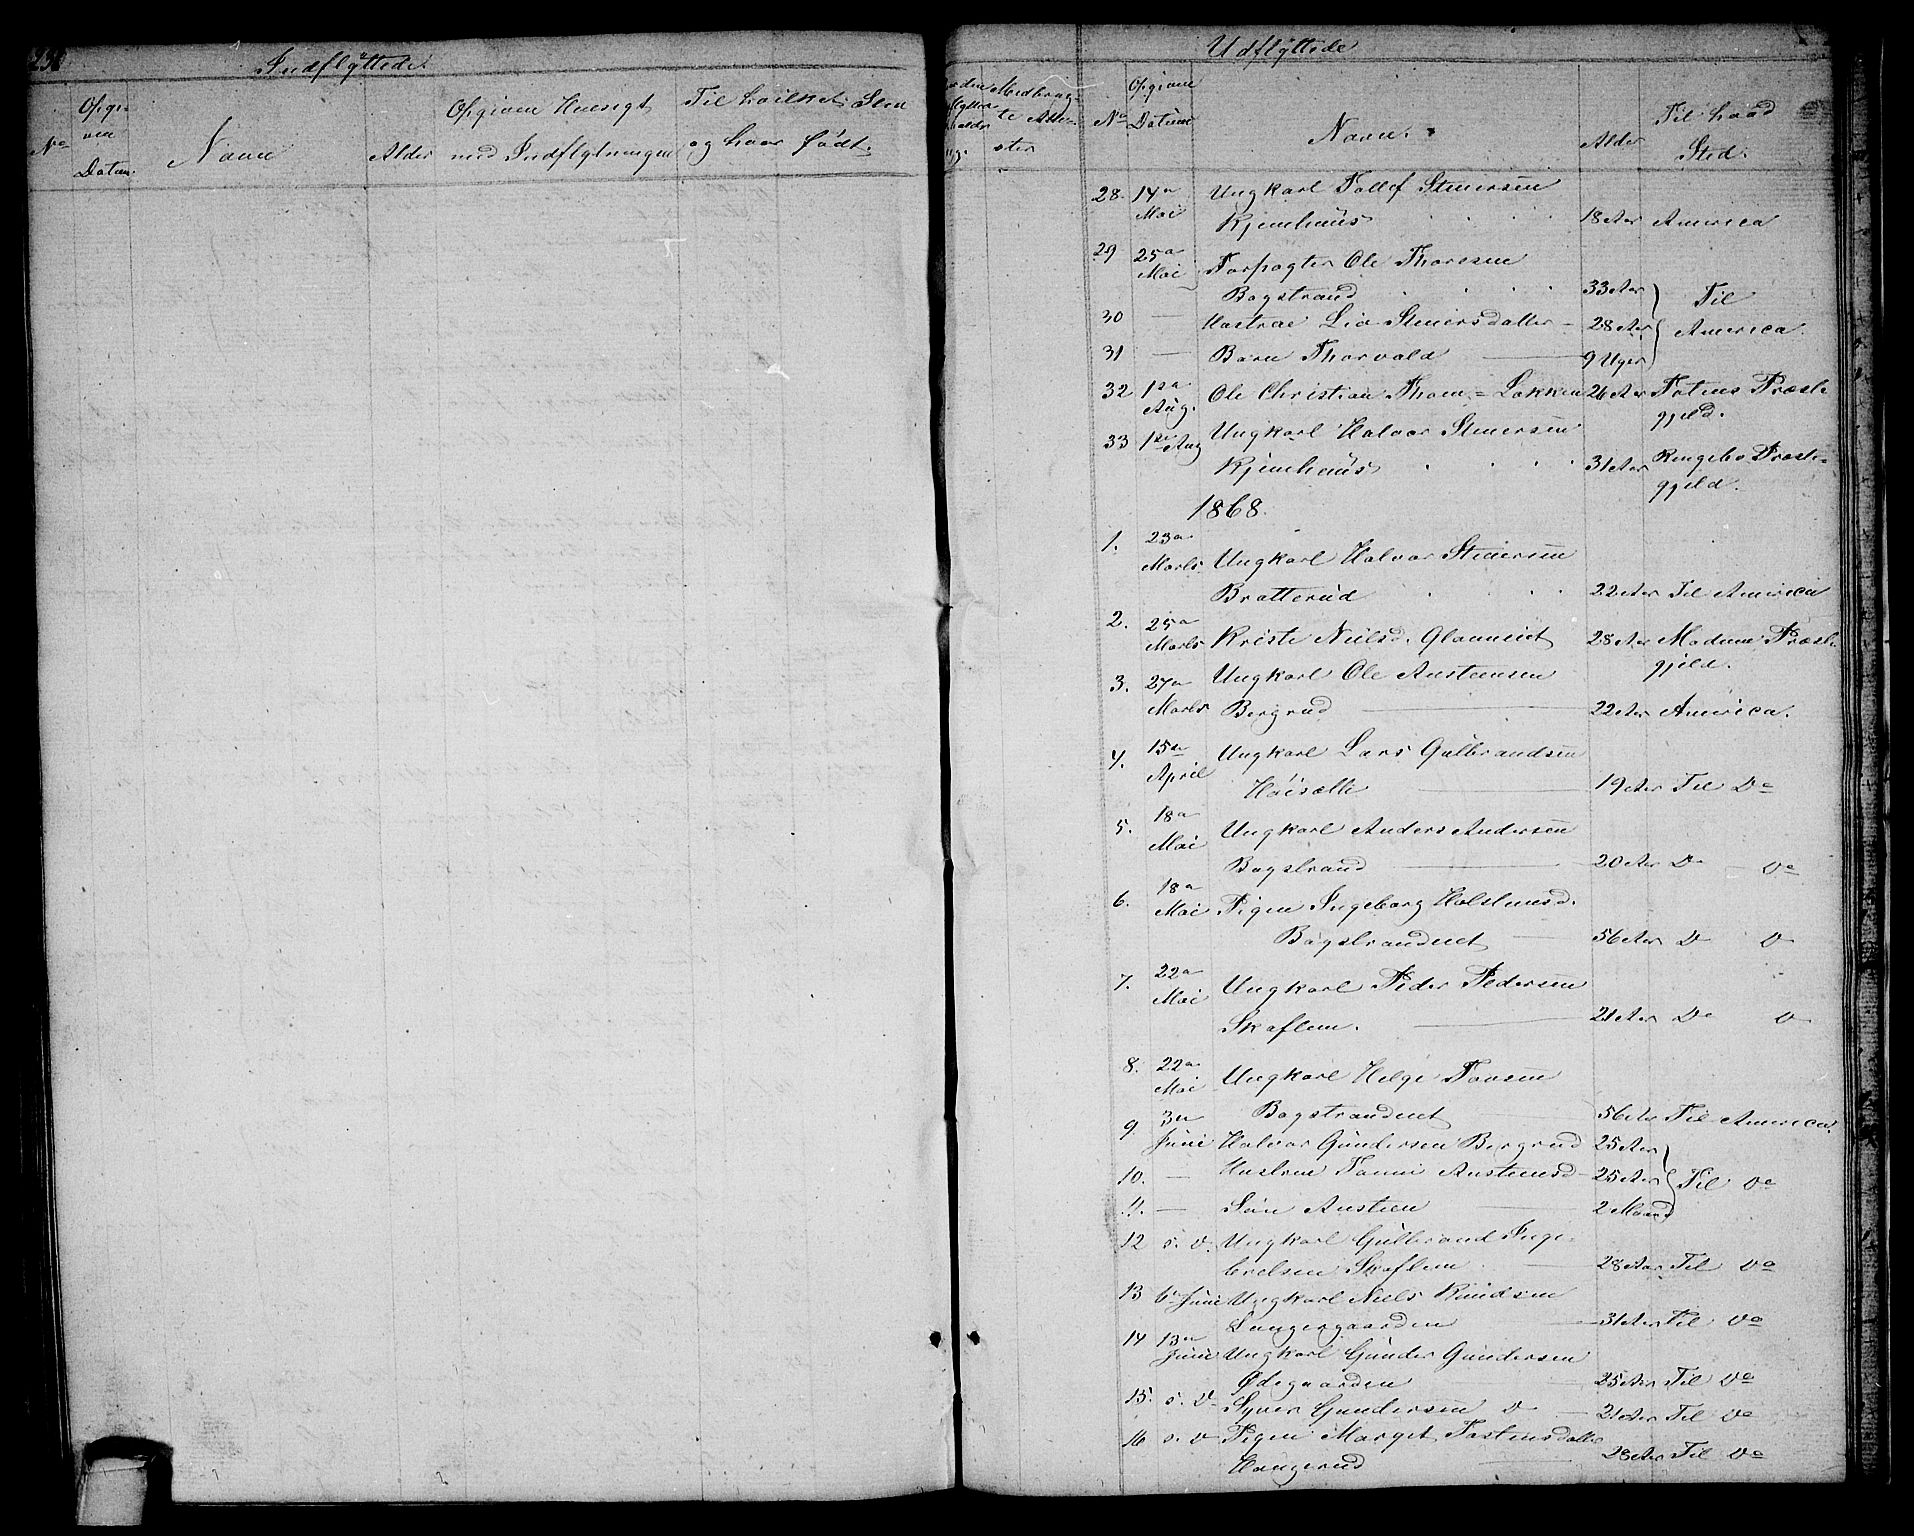 Indflyttede
Udflyttede
No
Opgiven Datum.
Navn
Alder
Opgiven Hensigt med Indflytningen
Til hvilket Sted og hvor født.
Medbragte Attester
No
Opgiven Datum
Navn.
Alder
Til hvad Sted.
28. 14de Mai Ungkarl Tollef Steuersen
Kjemhuus 18 Aar America
29 25de Mai Forpagter Ole Thoresen
Bagstrand 33 Aar
30 — Hustrue Lia Steuersdatter 28 Aar Til America.
31 — Barn Thorvald — 9 Uger
32 1ste Aug. Ole Christian Thom = Løkken 26 Aar Totens Præste
gjeld.
33 1ste Aug Ungkarl Halvor Steuersen
Kjemhuus 31 Aar Ringebo Præste-
gjeld.
1868.
1. 23de Marts. Ungkarl Halvor Steuersen
Bratterud 22 Aar Til America
2. 25de Marts Kriste Nielsd. Glammeiet 28 Aar Modums Præste
gjeld.
3. 27de Marts Ungkarl Ole Austensen
Bergrud — 22 Aar America.
4. 15de April Ungkarl Lars Gulbrandsen
Høisætte — 19 Aar Til Do
5. 18de Mai Ungkarl Anders Andersen
Bagstrand — 20 Aar Do Do
6. 18de Mai Pigen Ingeborg Holstensd.
Bagstrandeiet — 56 Aar D D
7. 22de Mai Ungkarl Peder Pedersen
Skaflem. — 21 Aar Do D
8. 22de Mai Ungkarl Helge Tovsen
Bagstrandeiet 56 Aar Til America.
9 3die Juni Halvor Gundersen Bergrud 25 Aar
10. — Hustrue Tonni Austensd 25 Aar Til Do
11. — Søn Austen — 2 Maaned
12 s. D. Ungkarl Gulbrand Inge-
brelsen Skaflem — 28 Aar Til Do
13 6te Juni Ungkarl Niels Knudsen
Langergaarden — 31 Aar Til Do
14 13de Juni Ungkarl Gunder Gundersen
Ødegaarden — 25 Aar Til Do
15. s. D. Syver Gundersen D — 21 Aar Til Do
16 s. D Pigen Marget Tostensdatter
Haugerud — 28 Aar Til Do